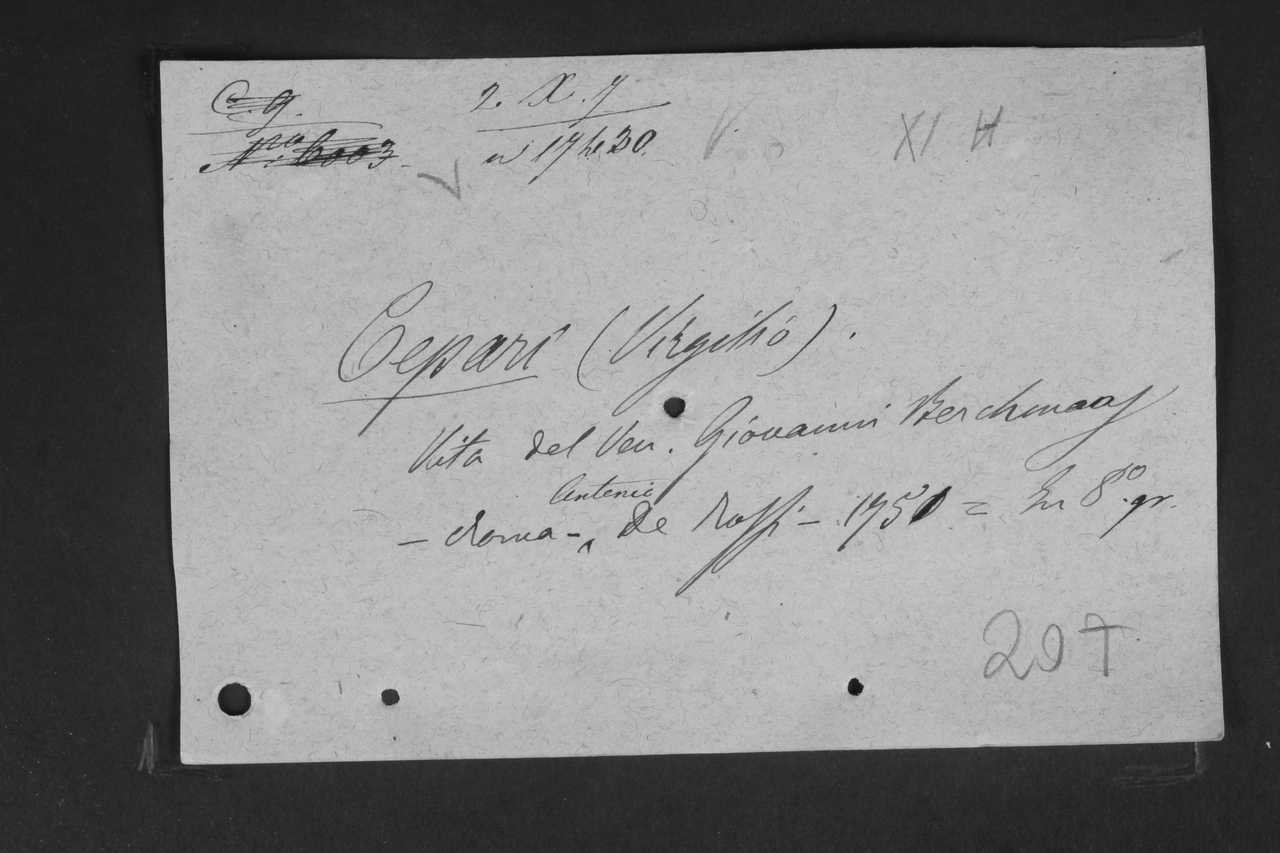 C. 9.
2. X. 7
Nro. 6003
XI H
Cepari (Virgilio).
Vita del Ven. Giovanni Berchmans
Antonio
— Roma — De Rossi — 1751 = In 8º. gr.
207